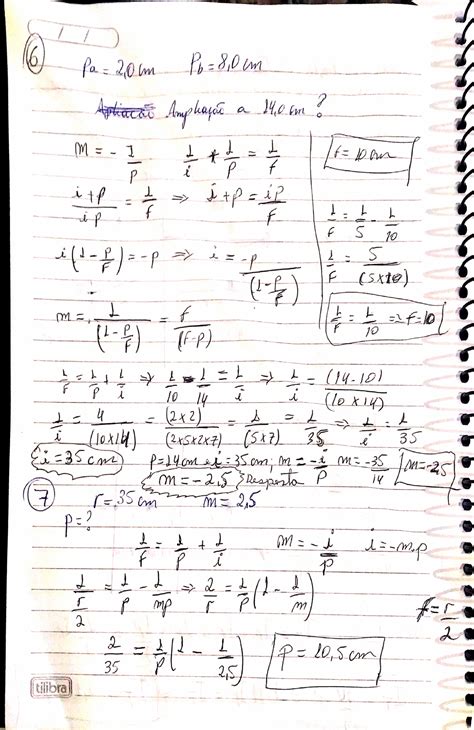 6
Pa = 2,0 cm   Pb = 8,0 cm
Ampliação a 14,0 cm?
m = -i/p   1/i + 1/p = 1/f
f = 10 cm
(i+p)/ip = 1/f ⇒ i+p = ip/f
1/f = 1/5 - 1/10
i(1 - p/f) = -p ⇒ i = -p/(1 - p/f)
1/f = 5/(5x10)
m = 1/(1 - p/f) = f/(f-p)
1/f = 1/10 ⇒ f = 10
1/f = 1/p + 1/i ⇒ 1/10 - 1/14 = 1/i ⇒ 1/i = (14-10)/(10x14)
1/i = 4/(10x14) = (2x2)/(2x5x2x7) = 1/(5x7) = 1/35 ⇒ 1/i = 1/35
i = 35 cm   p = 14 cm e i = 35 cm; m = -i/p   m = -35/14   m = -2,5
m = -2,5 Resposta
7   r = 35 cm   m = 2,5
p = ?
1/f = 1/p + 1/i   m = -i/p   i = -m.p
1/(r/2) = 1/p - 1/mp ⇒ 2/r = 1/p (1 - 1/m)   f = r/2
2/35 = 1/p (1 - 1/2,5)   p = 10,5 cm
tilibra